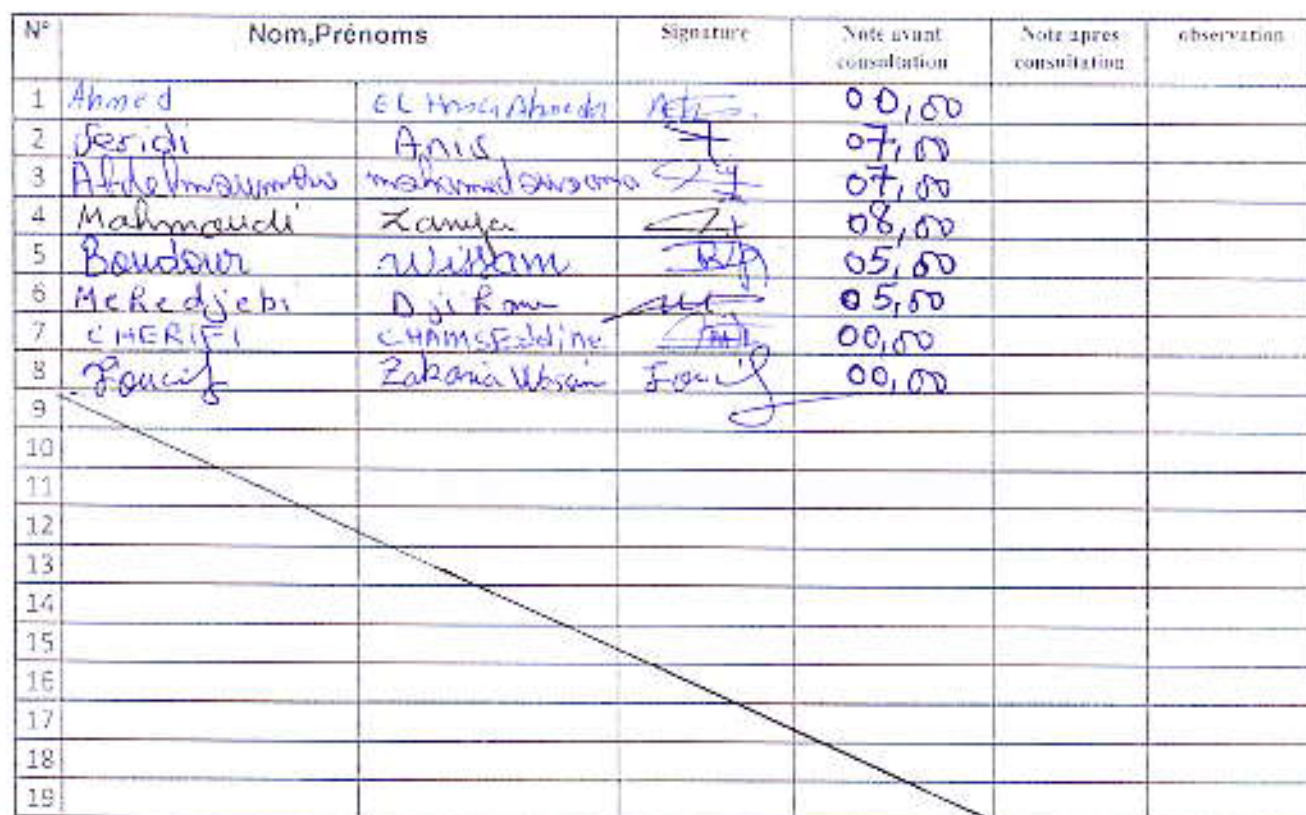 N° Nom,Prénoms Signature Note avant consultation Note apres consultation observation
1 Ahmed EL Ahmed 00,00
2 Feridi Anis 07,00
3 07,00
4 Mahmoudi Lamya 08,00
5 Boudour Wissam 05,00
6 Mekedjebi 05,00
7 CHERIFI CHAMSEddine 00,00
8 Foucif Zakaria Foucif 00,00
9
10
11
12
13
14
15
16
17
18
19